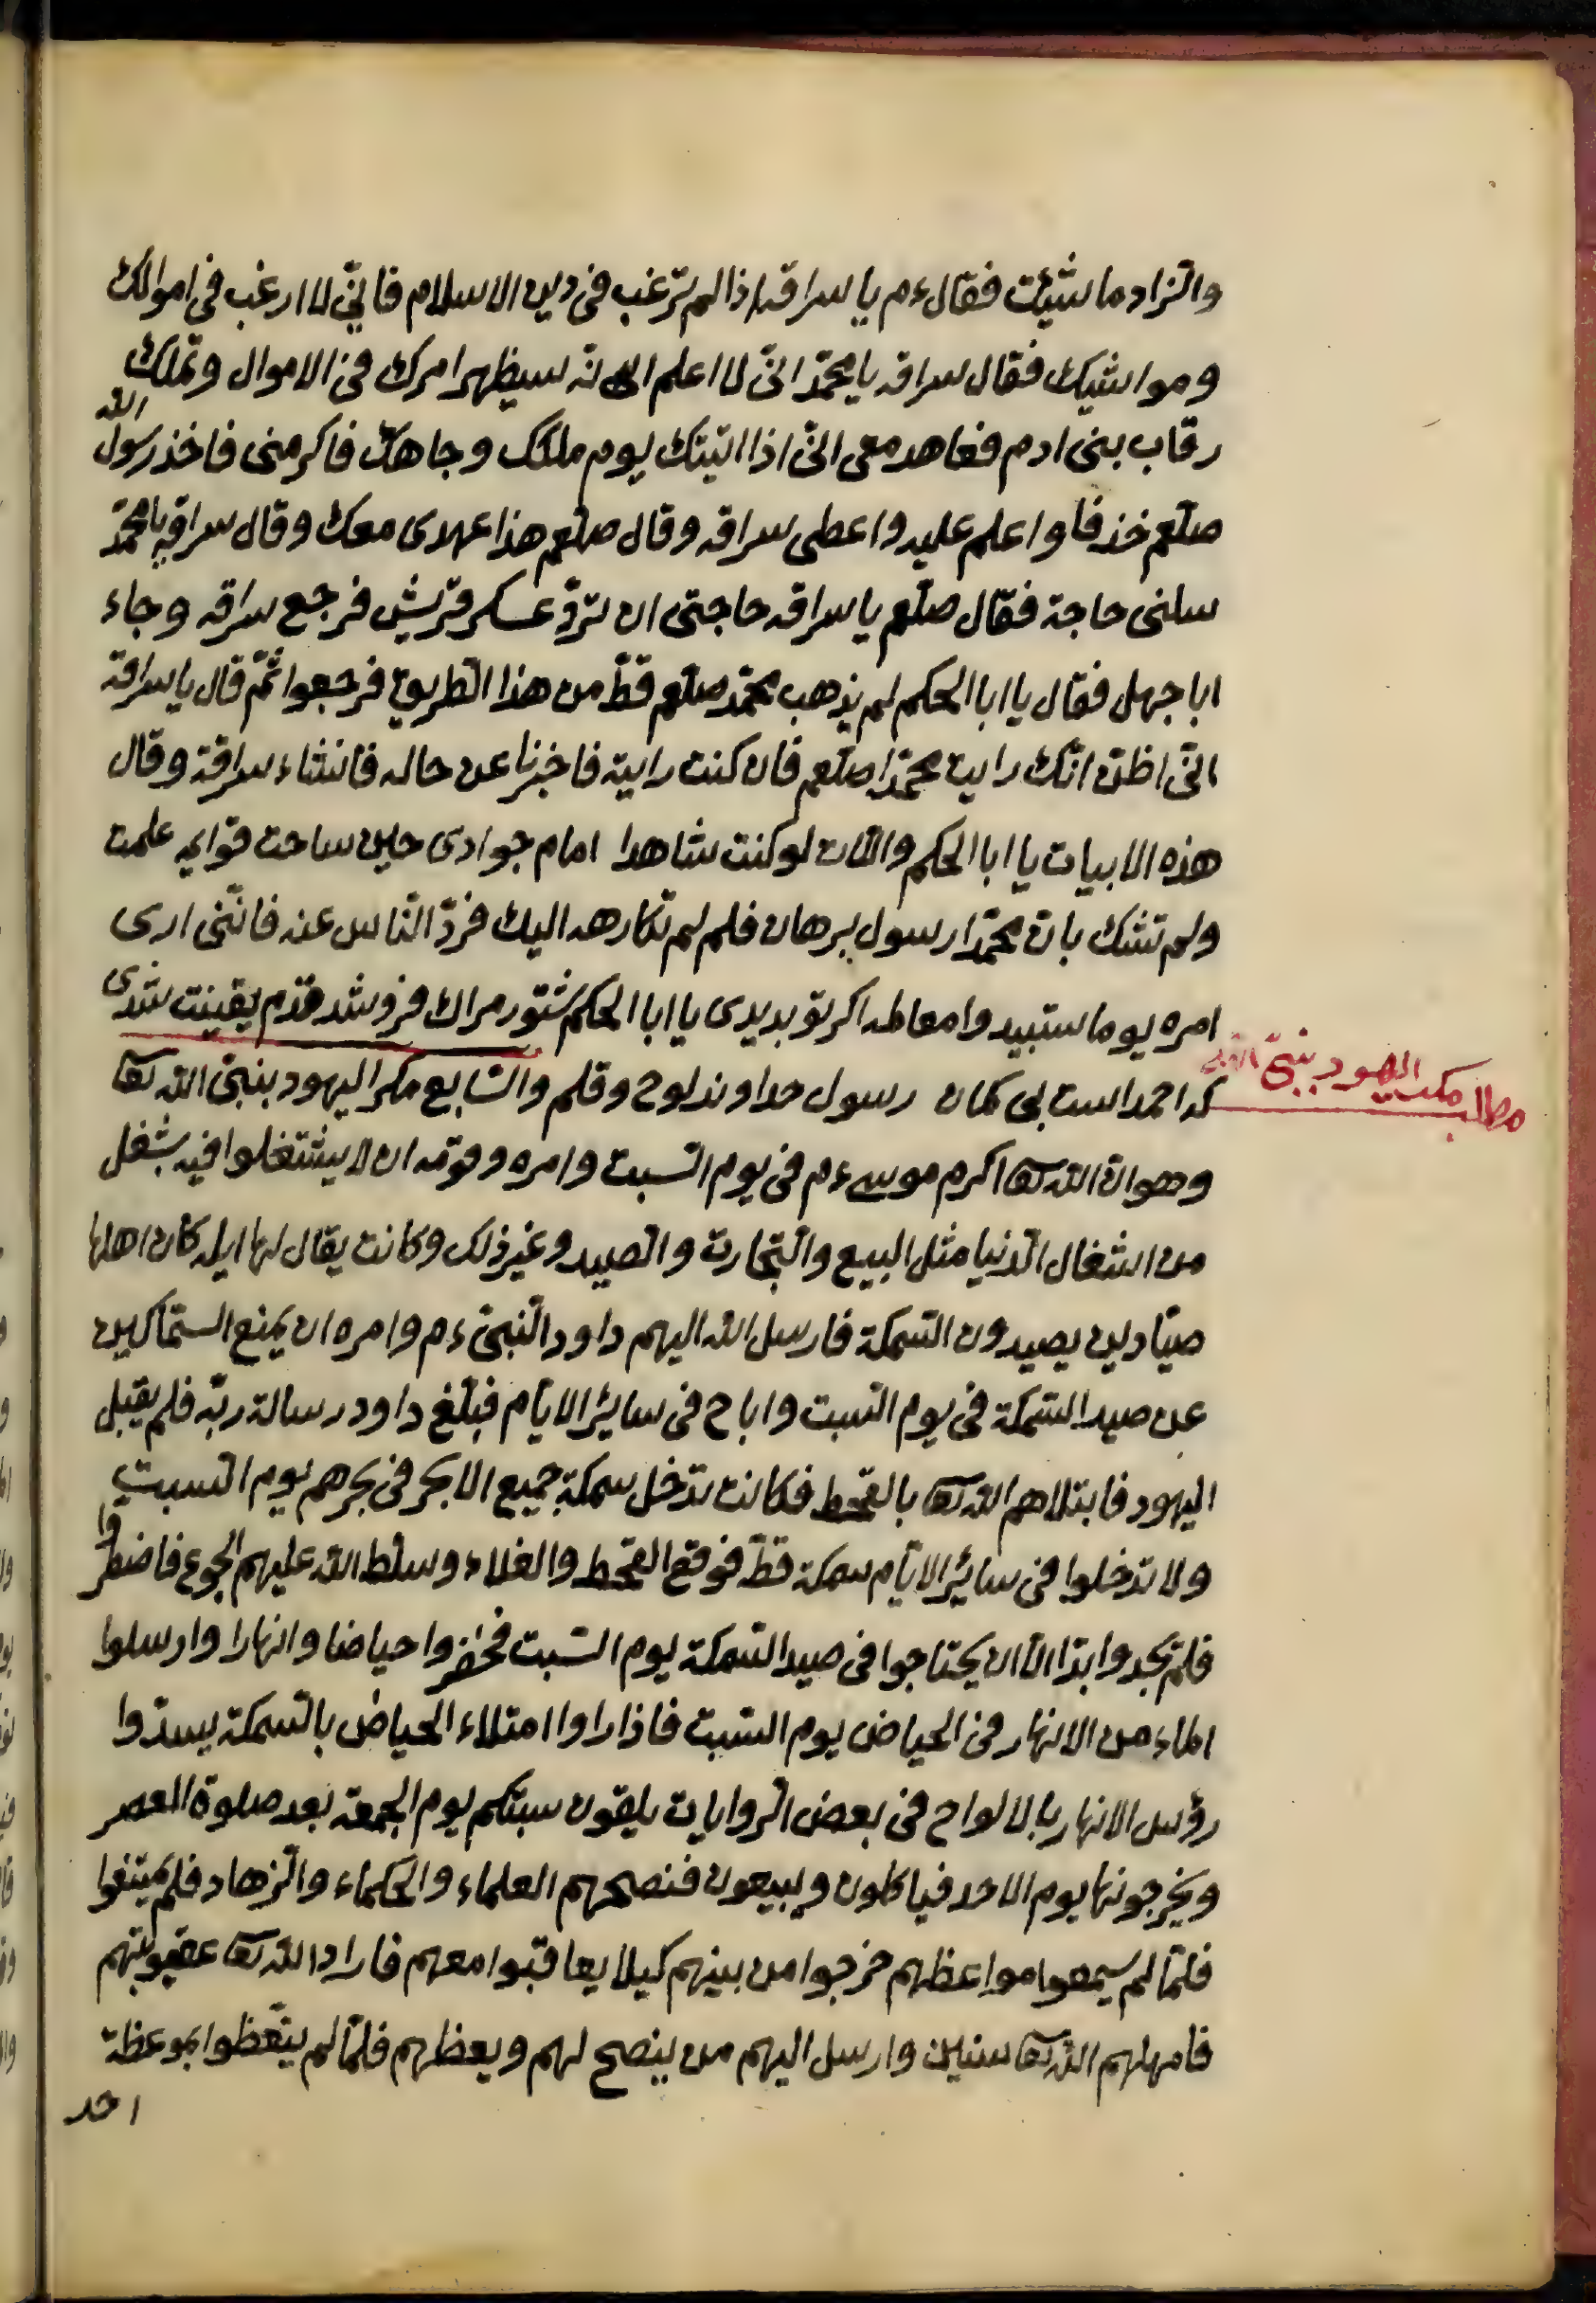 والزاد ما شئت فقال ءم يا سراقه اذا لم ترغب فى دين الاسلام فانّي لا ارغب فى اموالك
ومواشيك فقال سراقه يا محمّد انّى لا اعلم انّه سيظهر امرك فى الاموال وتملك
رقاب بنى ادم فعاهد معى انّى اذا اتيتك يوم ملكك وجاهك فاكرمنى فاخذ رسول الله
صلعم خذفا واعلم عليه واعطى سراقه وقال صلعم هذا عهدى معك وقال سراقه يا محمّد
سلنى حاجة فقال صلعم يا سراقه حاجتى ان تردّ عسكر قريش فرجع سراقه وجاء
ابا جهل فقال يا ابا الحكم لم يذهب محمّد صلعم قطّ من هذا الطريق فرجعوا ثمّ قال يا سراقة
انّى اظنّ انّك رايت محمّدا صلعم فان كنت رايته فاخبرنا عن حاله فانشاء سراقة وقال
هذه الابيات يا ابا الحكم واللات لو كنت شاهدا امام جوادى حين ساحت قوايه علمت
ولم تشك بان محمّدا رسول ببرهان فلم لم تكارهه اليك فردّ النّاس عنه فانّنى ارى
امره يوما ستبيد وامعاطه اكر تو بديدى يا ابا الحكم شتور مراك فروشد قدم يقينت شدى
كه احمد است بى كمان رسول خداوند لوح وقلم والسّابع مكر اليهود بنبىّ الله تعا
مطلب مكر اليهود بنبىّ الله
وهو انّ الله تعا اكرم موسى ءم فى يوم السّبت وامره وقومه ان لا يشتغلوا فيه بشغل
من اشغال الدّنيا مثل البيع والتّجارت والصيد وغير ذلك وكانت يقال لها ايله كان اهلها
صيّادين يصيدون السّمكة فارسل الله اليهم داود النّبىّ ءم وامره ان يمنع السّماكين
عن صيد السّمكة فى يوم السّبت واباح فى سائر الايّام فبلّغ داود رسالة ربّه فلم يقبل
اليهود فابتلاهم الله تعا بالقحط فكانت تدخل سمكة جميع الابحر فى بحرهم يوم السبت
ولا تدخلوا فى سائر الايّام سمكة قطّ فوقع القحط والغلاء وسلّط الله عليهم الجوع فاضطرّوا
فلم يجدوا ابدا الّا ان يحتاجوا فى صيد السّمكة يوم السّبت فحفروا حياضا وانهارا وارسلوا
الماء من الانهار فى الحياض يوم السّبت فاذا راوا امتلاء الحياض بالسّمكة يسدّوا
رؤس الانهار بالالواح فى بعض الرّوايات يلقون سبتكم يوم الجمعة بعد صلوة العصر
ويخرجونها يوم الاحد فياكلون ويبيعون فنصحهم العلماء والحكماء والزّهاد فلم يمتنعوا
فلمّا لم يسمعوا مواعظهم خرجوا من بينهم كيلا يعاقبوا معهم فاراد الله تعا عقوبتهم
فامهلهم الله تعا سنين وارسل اليهم من ينصح لهم ويعظهم فلمّا لم يتّعظوا بموعظة
احد